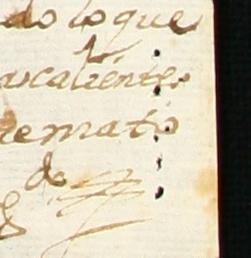 do lo que
ascalientes
remato
do